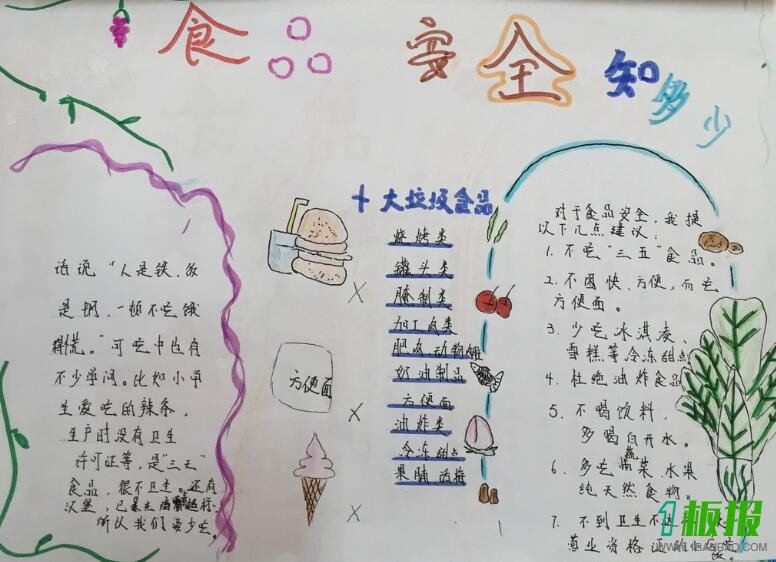 食品安全知多少
话说“人是铁,饭
是钢,一顿不吃饿
得慌。”可吃中也有
不少学问。比如小学
生爱吃的辣条,
生产时没有卫生
许可证等,是“三无”
食品,很不卫生。还有
汉堡,已
所以我们要少吃。
方便面
十大垃圾食品
烧烤类
罐头类
腌制类
加工肉类
肥肉、动物
奶油制品
方便面
油炸类
冷冻甜点
果脯 话梅
对于食品安全,我提
以下几点建议:
1. 不吃“三五”食品。
2. 不图快、方便,而吃
方便面。
3. 少吃冰淇凌、
雪糕等冷冻甜点
4. 杜绝油炸食品
5. 不喝饮料,
多喝白开水。
6. 多吃蔬菜、水果
纯天然食物。
7. 不到卫生不达
营业资格
1板报
WWW.1BANBAO.COM